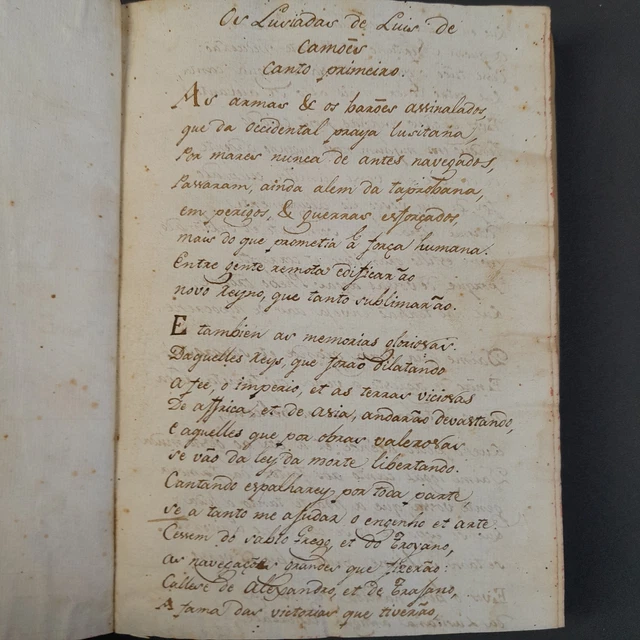 Os Lusiadas de Luis de
Camoẽs
Canto primeiro.
As armas & os barões assinalados,
que da Occidental praya lusitana,
Por mares nunca de antes navegados,
Passaram, ainda alem da taprobana,
em perigos, & guerras esforçados,
mais do que prometia à força humana.
Entre gente remota edificarão
novo Reyno, que tanto sublimarão.
E tambien as memorias gloriosas
Daquelles Reys, que forão dilatando
a feé, o imperio, et as terras viciosas
De affrica, et de asia, andarão devastando,
e aquelles que por obras valerosas
se vão da ley da morte libertando:
Cantando espalharey por toda parte
se a tanto me ajudar o engenho et arte.
Cessem do sabio Grego, et do Troyano,
as navegações grandes que fizerão:
Callese de Alexandro, et de Trajano,
A fama das victorias que tiverão,